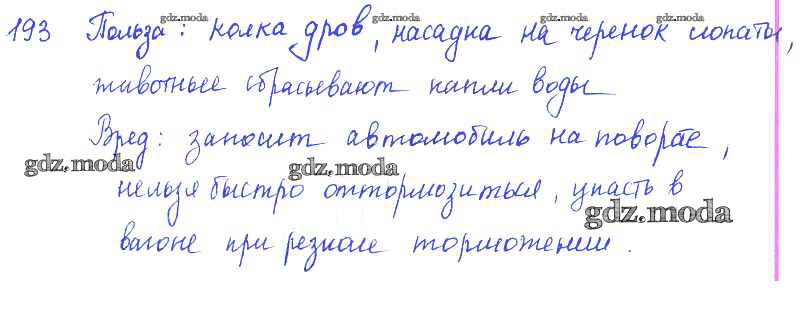 gdz.moda gdz.moda gdz.moda gdz.moda
193 Польза: колка дров, насадка на черенок лопаты,
животные сбрасывают капли воды
Вред: заносит автомобиль на поворте,
gdz.moda gdz.moda
нельзя быстро оттормозиться, упасть в
gdz.moda
вагоне при резком торможении.